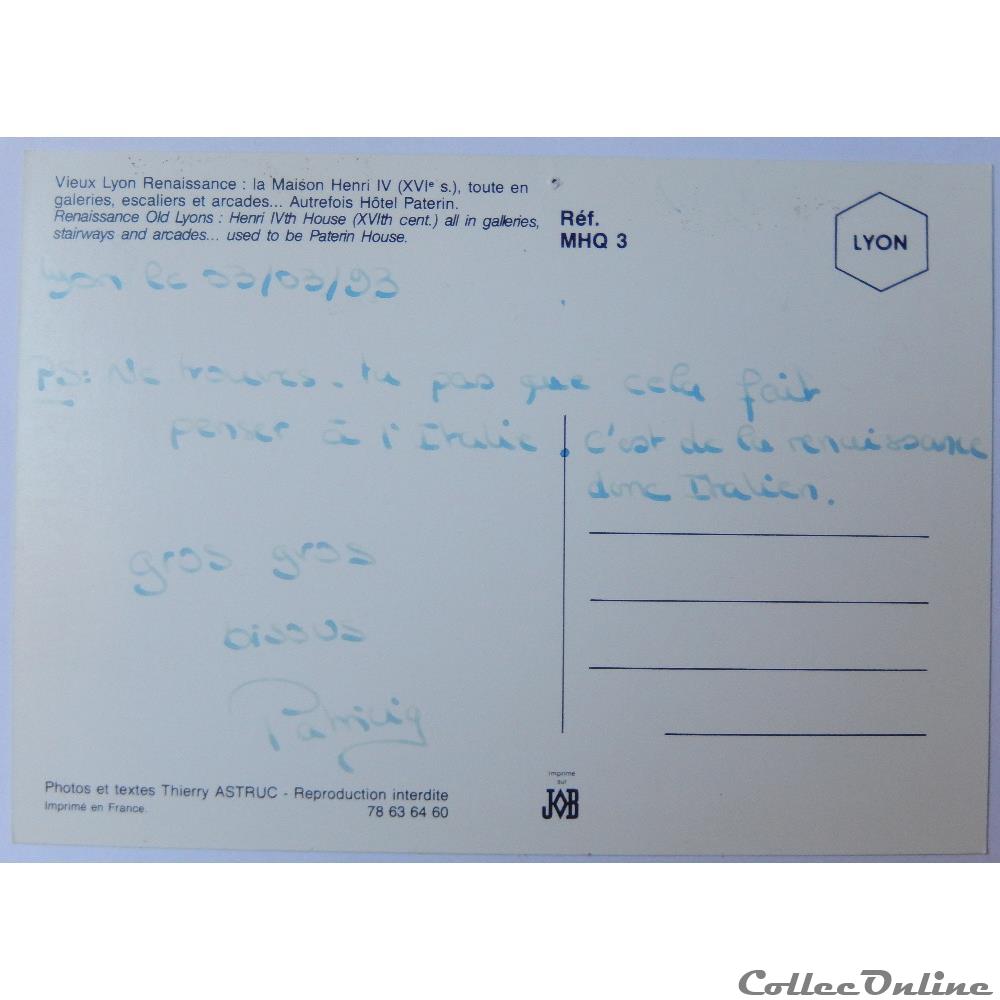 Vieux Lyon Renaissance : la Maison Henri IV (XVIe s.), toute en
galeries, escaliers et arcades... Autrefois Hôtel Paterin.
Renaissance Old Lyons : Henri IVth House (XVIth cent.) all in galleries,
stairways and arcades... used to be Paterin House.
Réf.
MHQ 3
LYON
Lyon le 03/03/93
PS: Ne trouves-tu pas que cela fait
penser à l'Italie. C'est de la renaissance
donc Italien.
gros gros
bisous
Patricia
Photos et textes Thierry ASTRUC - Reproduction interdite
Imprimé en France.
78 63 64 60
imprimé
sur
JOB
CollecOnline